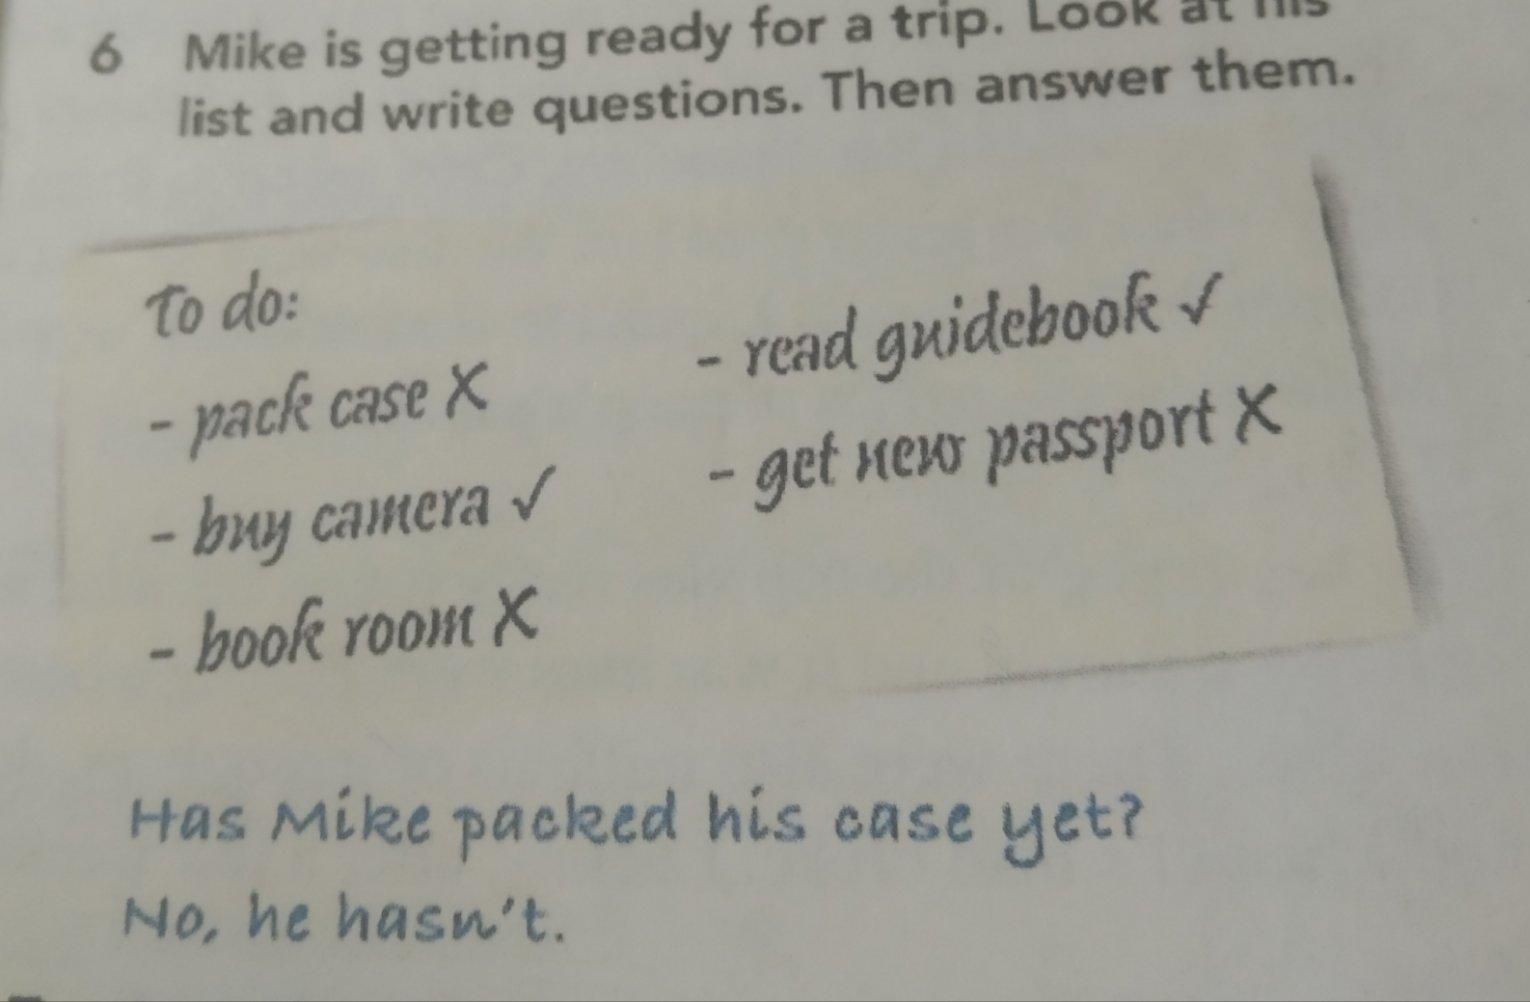 6 Mike is getting ready for a trip. Look at his
list and write questions. Then answer them.
To do:
- pack case X
- buy camera ✓
- book room X
- read guidebook ✓
- get new passport X
Has Mike packed his case yet?
No, he hasn't.